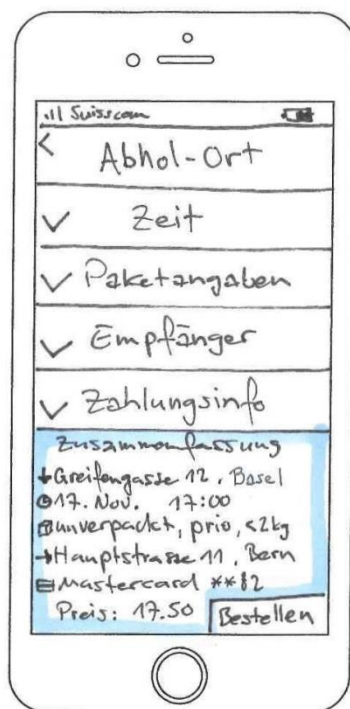 Swisscom
Abhol-Ort
Zeit
Paketangaben
Empfänger
Zahlungsinfo
Zusammenfassung
Greifengasse 12, Basel
17. Nov. 17:00
unverpackt, prio, <2kg
Hauptstrasse 11, Bern
Mastercard **82
Preis: 17.50
Bestellen